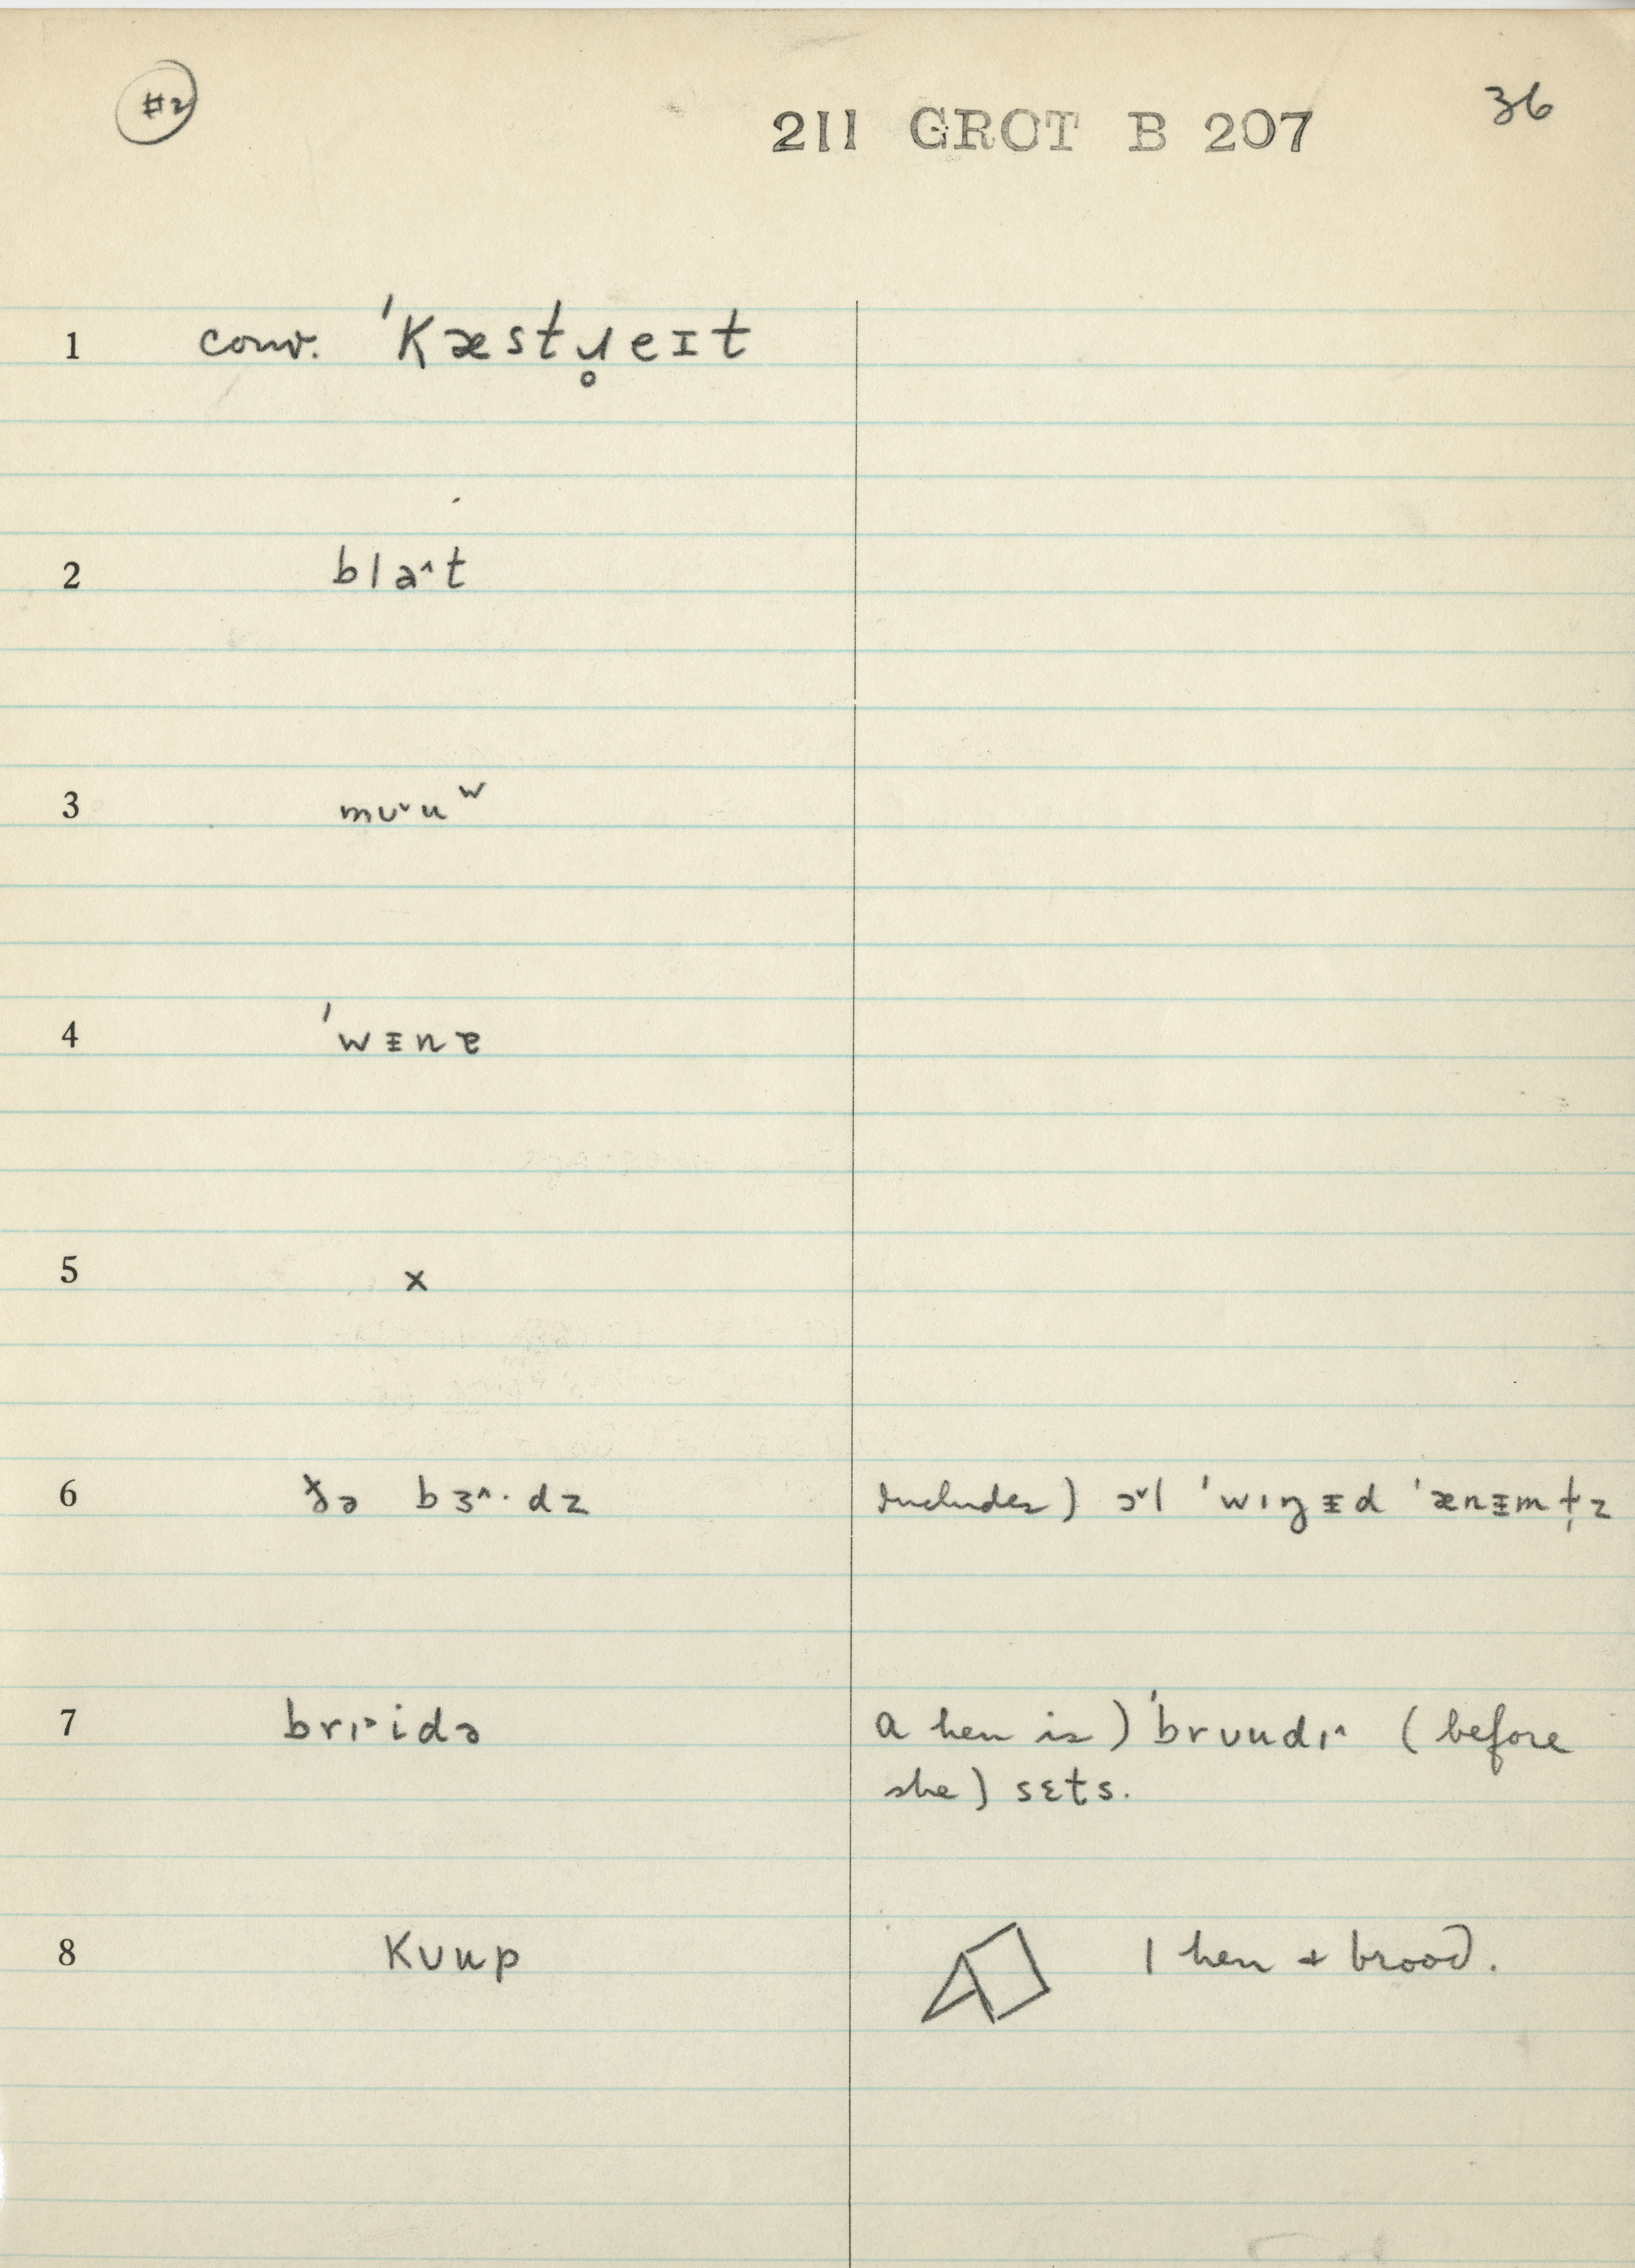 #2
211 GROT B 207
36
1 conv. ˈkæstɹ̥eɪt
2 blaˆt
3 mʊˇuʷ
4 ˈwɪ̵nɐ
5 x
6 ðə bɜˆ·dz includes) ɔˇl ˈwɪŋɪ̵d ˈænɪ̵mɫ̩z
7 brɪ˃idə a hen is) ˈbrʊudɪˆ (before
she) sɛts.
8 kʊup 1 hen + brood.